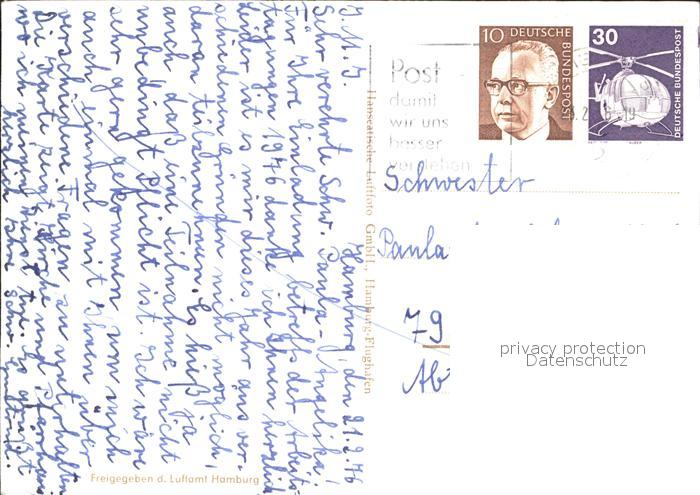 J. M. J.
Hamburg, den 21.2.76
Sehr verehrte Schw. Paula-Angelika!
Für Ihre Einladung betreffs der Arbeits-
tagungen 1976 danke ich Ihnen herzlich
leider ist es mir dieses Jahr aus ver-
schiedenen Gründen nicht möglich,
daran teilzunehmen. Es hieß ja
auch, daß eine Teilnahme nicht
unbedingt Pflicht ist. Ich wäre
sehr gern gekommen, um mich
auch einmal mit Ihnen über
verschiedene Fragen zu unterhalten
Die Karte zeigt Kirche und Pfarrhaus
wo ich nunmehr
herzlich Ihre Schw.
Hanseatische Luftfoto GmbH., Hamburg-Flughafen
Freigegeben d. Luftamt Hamburg
Post
damit
wir uns
besser
verstehen
10 DEUTSCHE BUNDESPOST
30 DEUTSCHE BUNDESPOST
Schwester
Paula
79
privacy protection
Datenschutz